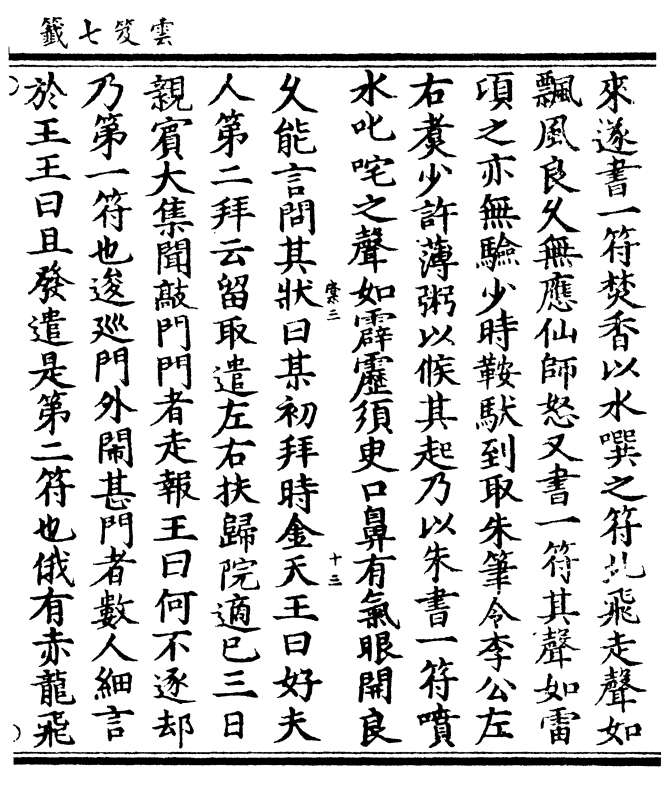 雲笈七籤
來遂書一符焚香以水噀之符北飛走聲如
飄風良久無應仙師怒又書一符其聲如雷
頃之亦無驗少時鞍馱到取朱筆令李公左
右煑少許薄粥以候其起乃以朱書一符噴
水叱咤之聲如霹靂須臾口鼻有氣眼開良
案三 十三
久能言問其狀曰某初拜時金天王曰好夫
人第二拜云留取遣左右扶歸院適已三日
親賓大集聞敲門門者走報王曰何不逐却
乃第一符也逡巡門外閙甚門者數人細言
於王王曰且發遣是第二符也俄有赤龍飛